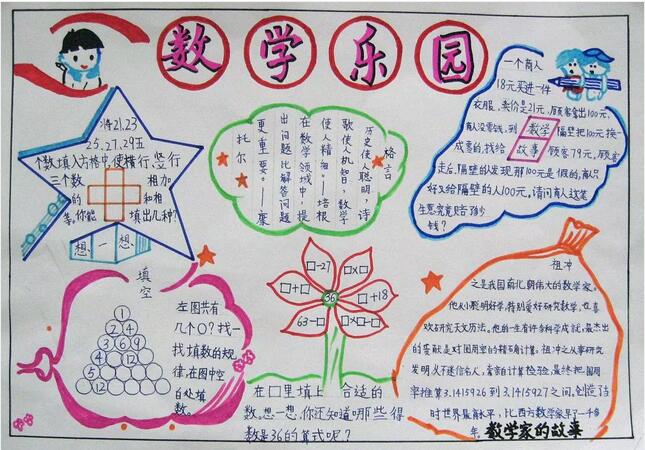 数学乐园
将21,23
25,27,29五
个数填入方格中,使横行,竖行
三个数 相加
的 和相
等。你能 填出几种?
想一想
格言
历史使人聪明,诗
歌使人机智,数学
使人精细。——培根
在数学领域中,提
出问题比解答问题
更重要。——康
托尔
一个商人
18元买进一件
衣服,卖价是21元,顾客拿出100元,
商人没零钱,到 隔壁把100元换
成零的,找给 顾客79元,顾客
数学
故事
走后,隔壁的发现,那100是假的,商人只
好又给隔壁的人100元。请问商人这笔
生意究竟赔了多少
钱?
填空
1
2 4
6 9
4 12 16
5
12
在图共有
几个○?找一
找填数的规
律,在图中空
白处填
数。
□-27
□×□
□+□
36
□+18
63-□
□×□-□
在□里填上 合适的
数。想一想,你还知道哪些得
数是36的算式呢?
祖冲
之是我国南北朝伟大的数学家。
他从小聪明好学,特别爱好研究数学,也喜
欢研究天文历法。他的一生有许多科学成就,最杰出
的贡献是对圆周率的精确计算。祖冲之从事研究
发明,从不迷信名人,
最终把圆周
率推算3.1415926到3.1415927之间。创造了当
时世界最高水平,比西方数学家早了一千多
年。
数学家的故事